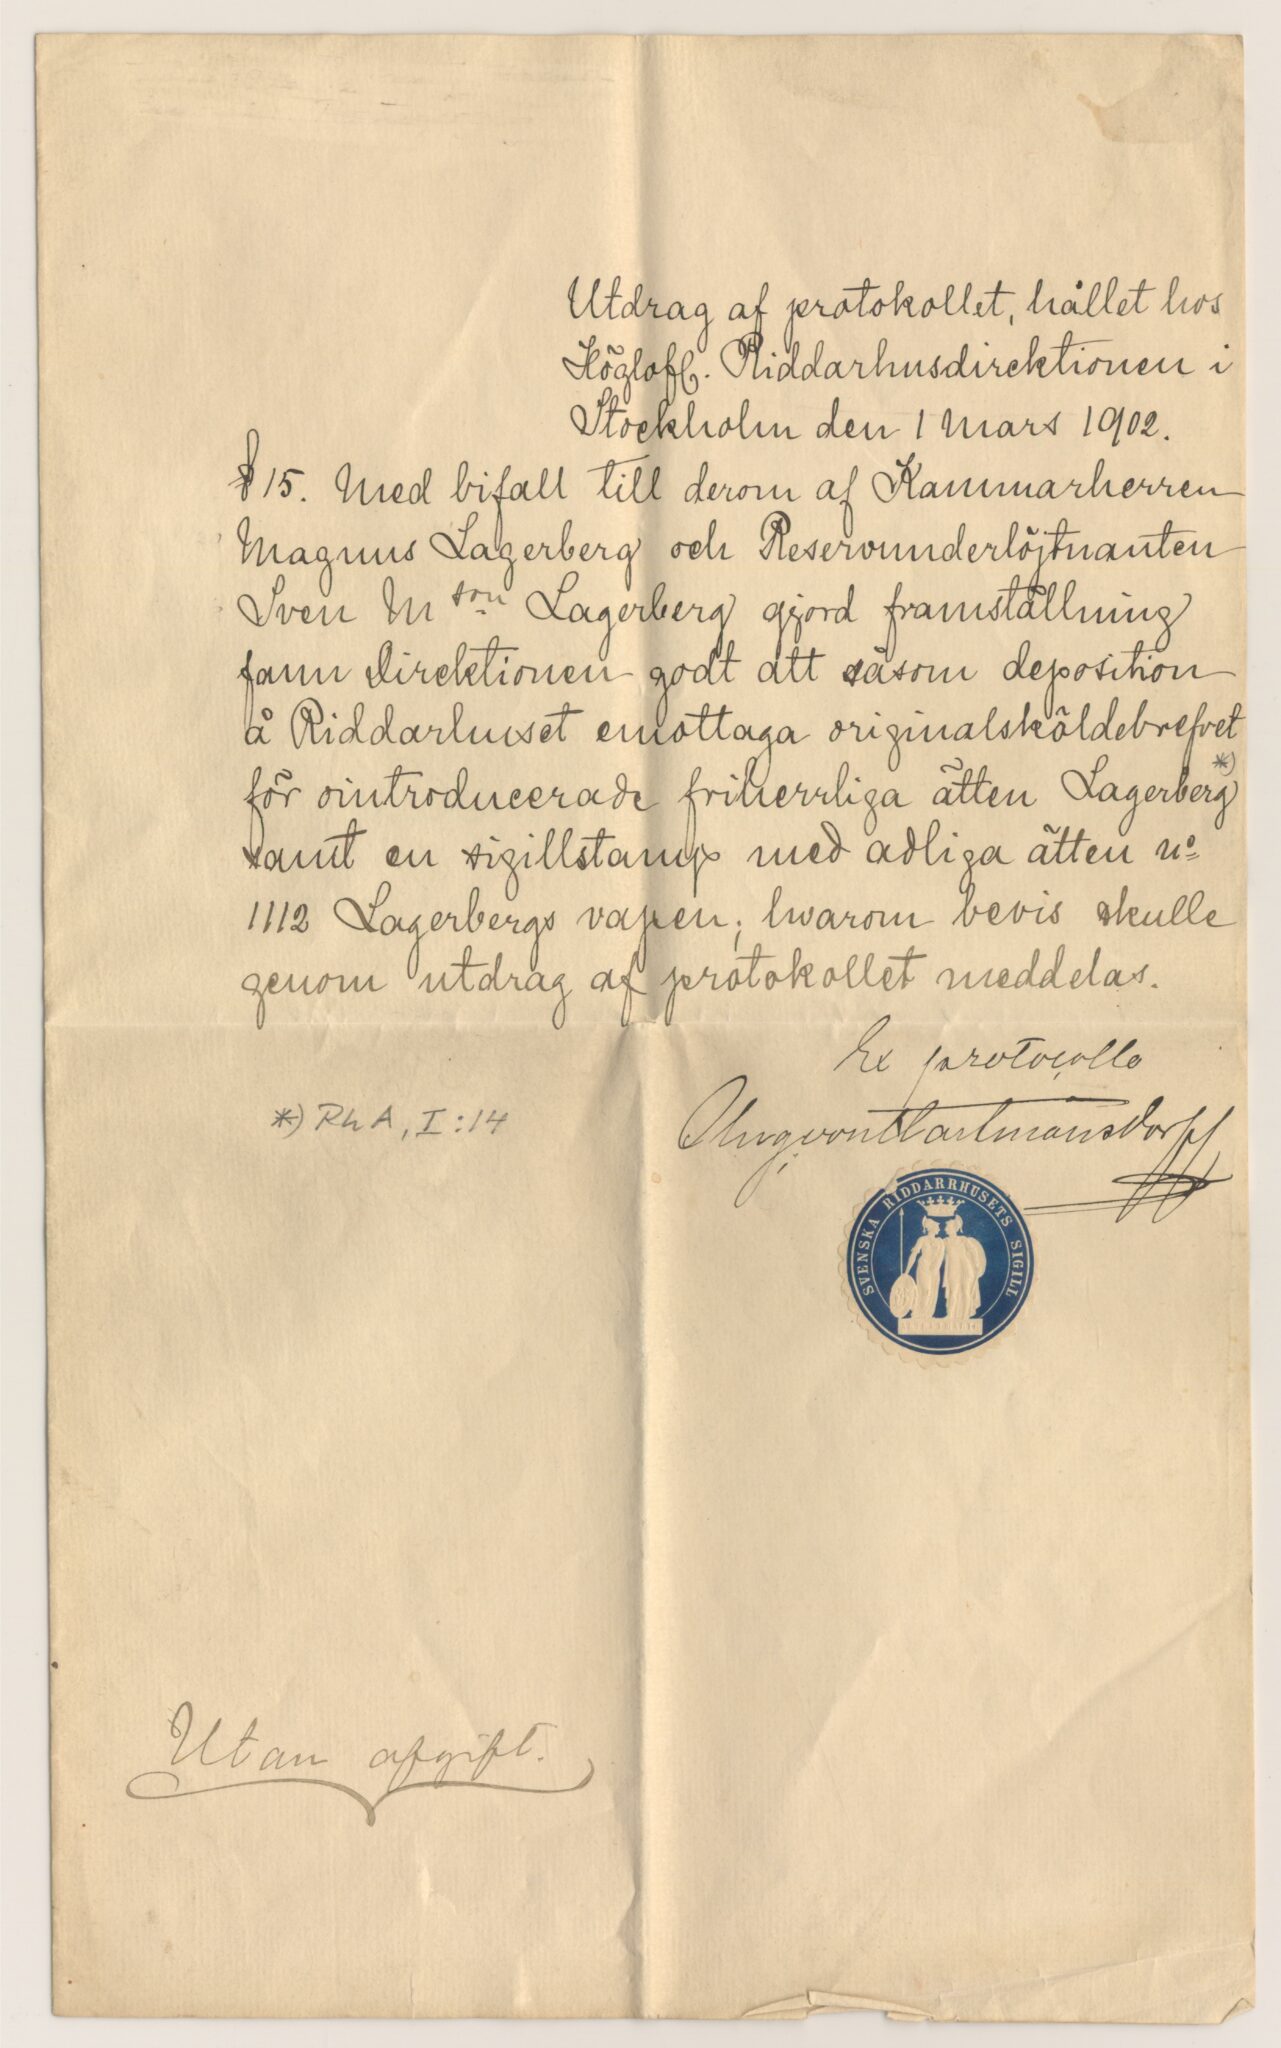 Utdrag af protokollet, hållet hos
Höglofl. Riddarhusdirektionen i
Stockholm den 1 Mars 1902.
§ 15. Med bifall till derom af Kammarherren
Magnus Lagerberg och Reservunderlöjtnanten
Sven M son Lagerberg gjord framställning
fann Direktionen godt att såsom deposition
å Riddarhuset emottaga originalsköldebrefvet
för ointroducerade friherrliga ätten Lagerberg *)
samt en sigillstamp med adliga ätten no
1112 Lagerbergs vapen; hwarom bevis skulle
genom utdrag af protokollet meddelas.
Ex protocollo
*) RhA, I:14
Aug von Hartmansdorff
SVENSKA RIDDARRHUSETS SIGILL
Utan afgift.